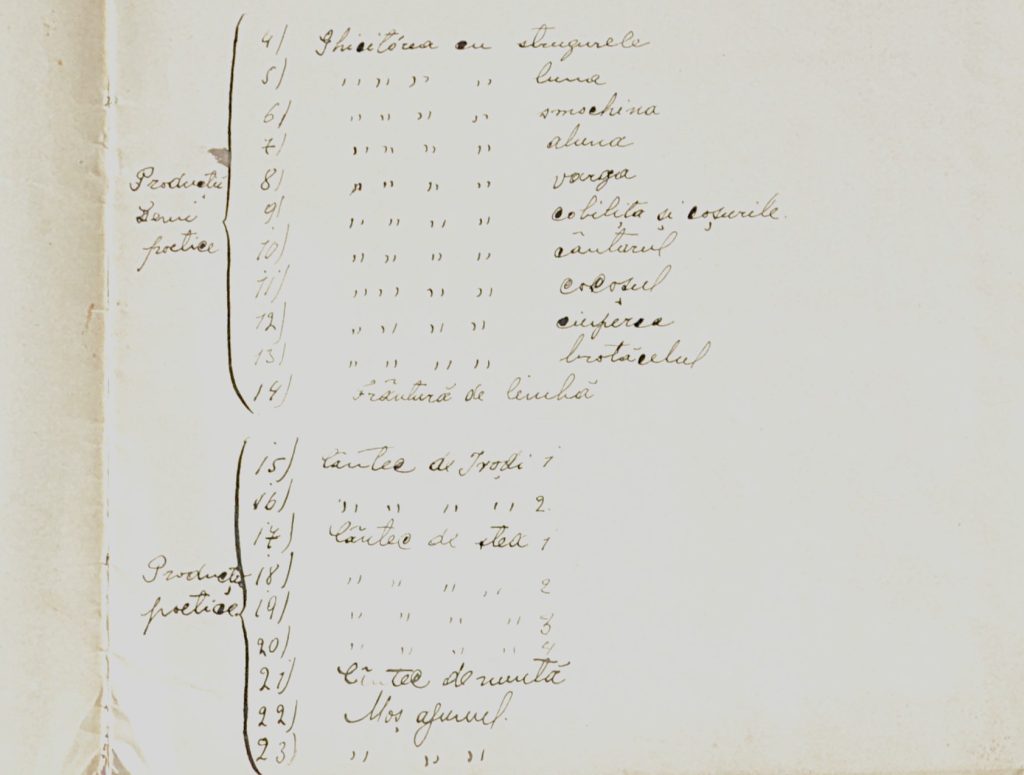 4) Ghicitórea cu strugurele
5) " " " " luna
6) " " " " smochina
7) " " " " aluna
Producții
8) " " " " varga
Semi
9) " " " " cobilița și coșurile.
poetice
10) " " " " cânturul
11) " " " " cocoșul
12) " " " " ciuperca
13) " " " " brotăcelul
14) Frântură de limbă
15) Cântec de Irođi 1
16) " " " " 2
17) Cântec de stea 1
Producții
18) " " " " 2
poetice
19) " " " " 3
20) " " " " 4
21) Cântec de nuntă
22) Moș ajunul.
23) " " "